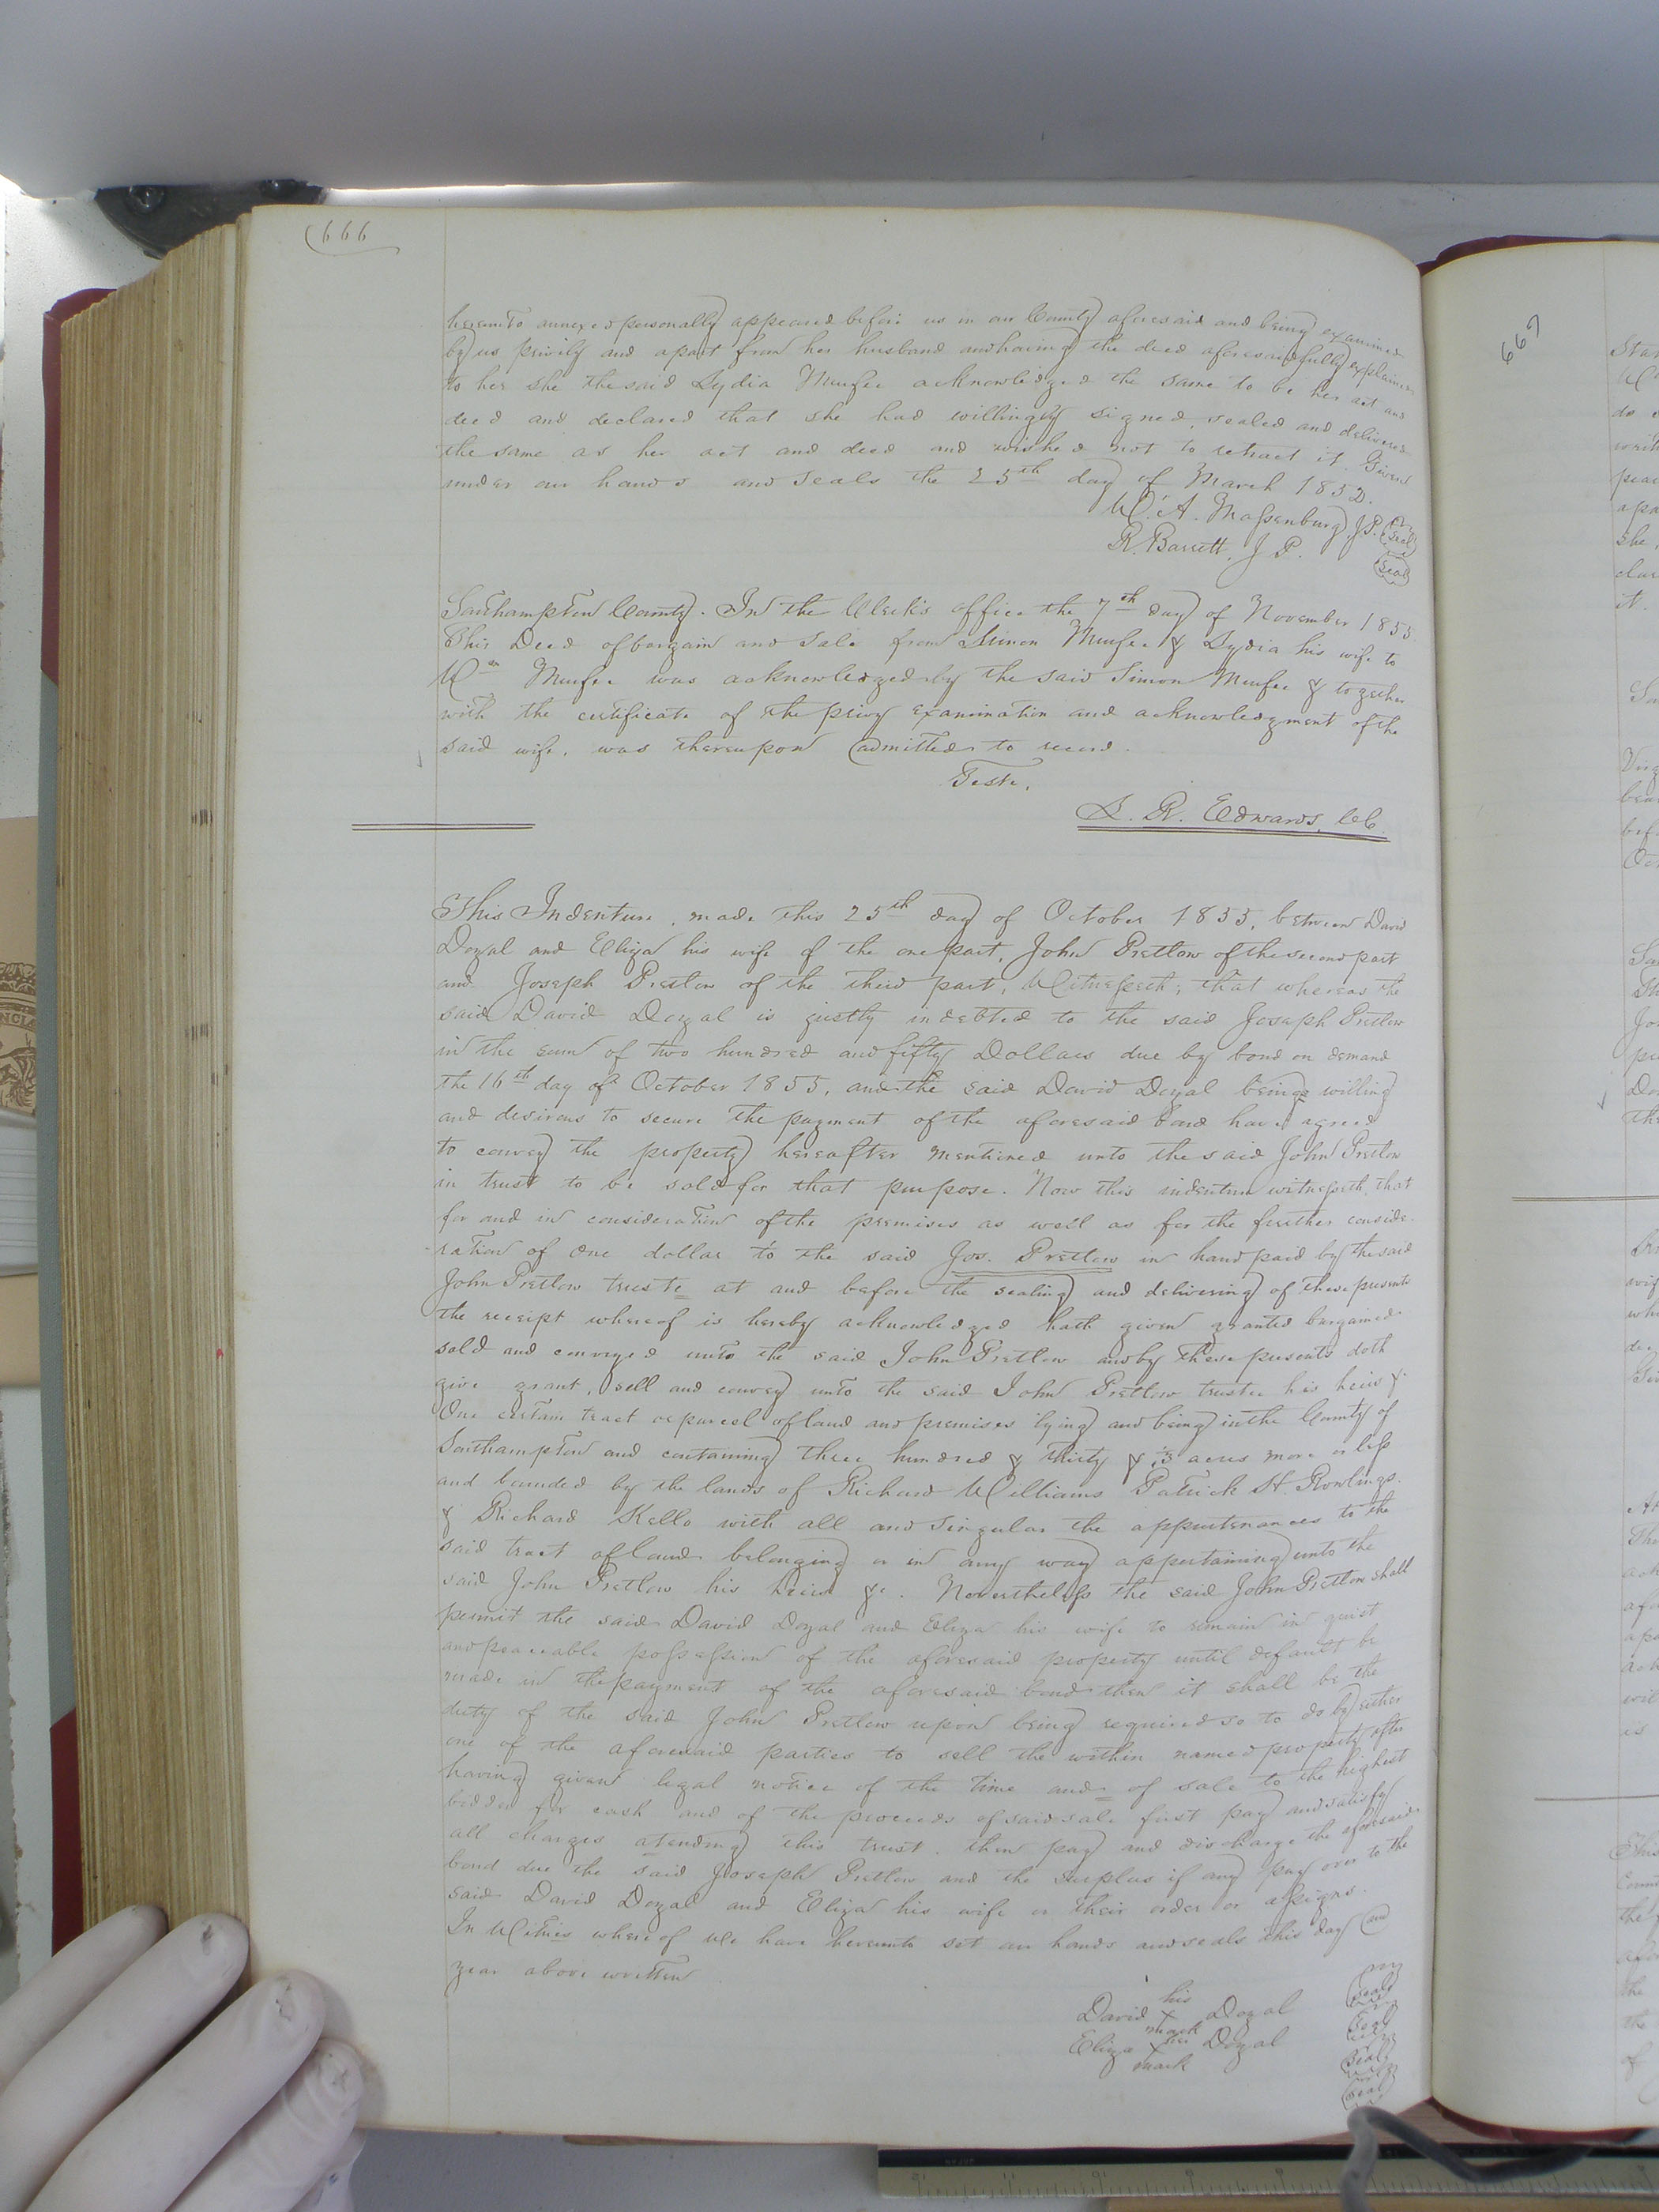 666
hereunto annexed personally appeared before us in our County aforesaid and being examined
by us privily and apart from her husband and having the deed aforesaid fully explained
to her she the said Lydia Murfee acknowledged the same to be her act and
deed and declared that she had willingly signed, sealed and delivered
the same as her act and deed and wished not to retract it. Given
under our hands and seals the 25th day of March 1852.
W. A. Massenburg, J.P. Seal
R. Barrett, J P. Seal
Southampton County. In the Clerk's office the 7th day of November 1855
This Deed of bargain and Sale from Simon Murfee & Lydia his wife to
Wm Murfee was acknowledged by the said Simon Murfee & together
with the certificate of the privy examination and acknowledgment of the
said wife, was thereupon admitted to record.
Teste,
L. R. Edwards, CC.
This Indenture, made this 25th day of October 1855, between David
Doyal and Eliza his wife of the one part, John Pretlow of the second part
and Joseph Pretlow of the third part, Witnesseth; that whereas the
said David Doyal is justly indebted to the said Joseph Pretlow
in the sum of two hundred and fifty Dollars due by bond on demand
the 16th day of October 1855, and the said David Doyal being willing
and desirous to secure the payment of the aforesaid bond have agreed
to convey the property hereafter mentioned unto the said John Pretlow
in trust to be sold for that purpose. Now this indenture witnesseth, that
for and in consideration of the premises as well as for the further conside-
-ration of One dollar to the said Jos. Pretlow in hand paid by the said
John Pretlow truste at and before the sealing and delivering of these presents
the receipt whereof is hereby acknowledged hath given granted bargained
sold and conveyed unto the said John Pretlow and by these presents doth
give grant, sell and convey unto the said John Pretlow trustee his heirs &c
One certain tract or parcel of land and premises lying and being in the County of
Southampton and containing three hundred & thirty & acres more or less
and bounded by the lands of Richard Williams Patrick H. Rowlings
& Richard Kello with all and Singular the appurtenances to the
said tract of land belonging or in any way appertaining unto the
said John Pretlow his heirs &c. Nevertheless the said John Pretlow shall
permit the said David Doyal and Eliza his wife to remain in quiet
and peaceable possession of the aforesaid property until default be
made in the payment of the aforesaid bond then it shall be the
duty of the said John Pretlow upon being required so to do by either
one of the aforesaid parties to sell the within named property after
having given legal notice of the time and of sale to the highest
bidder for cash and of the proceeds of said sale first pay and satisfy
all charges atending this trust. then pay and discharge the aforesaid
bond due the said Joseph Pretlow and the surplus if any pay over to the
said David Doyal and Eliza his wife or their order or assigns.
In Witness whereof we have hereunto set our hands and seals this day and
year above written
his
David X Doyal Seal
mark
her Seal
Eliza X Doyal
mark Seal
Seal
667